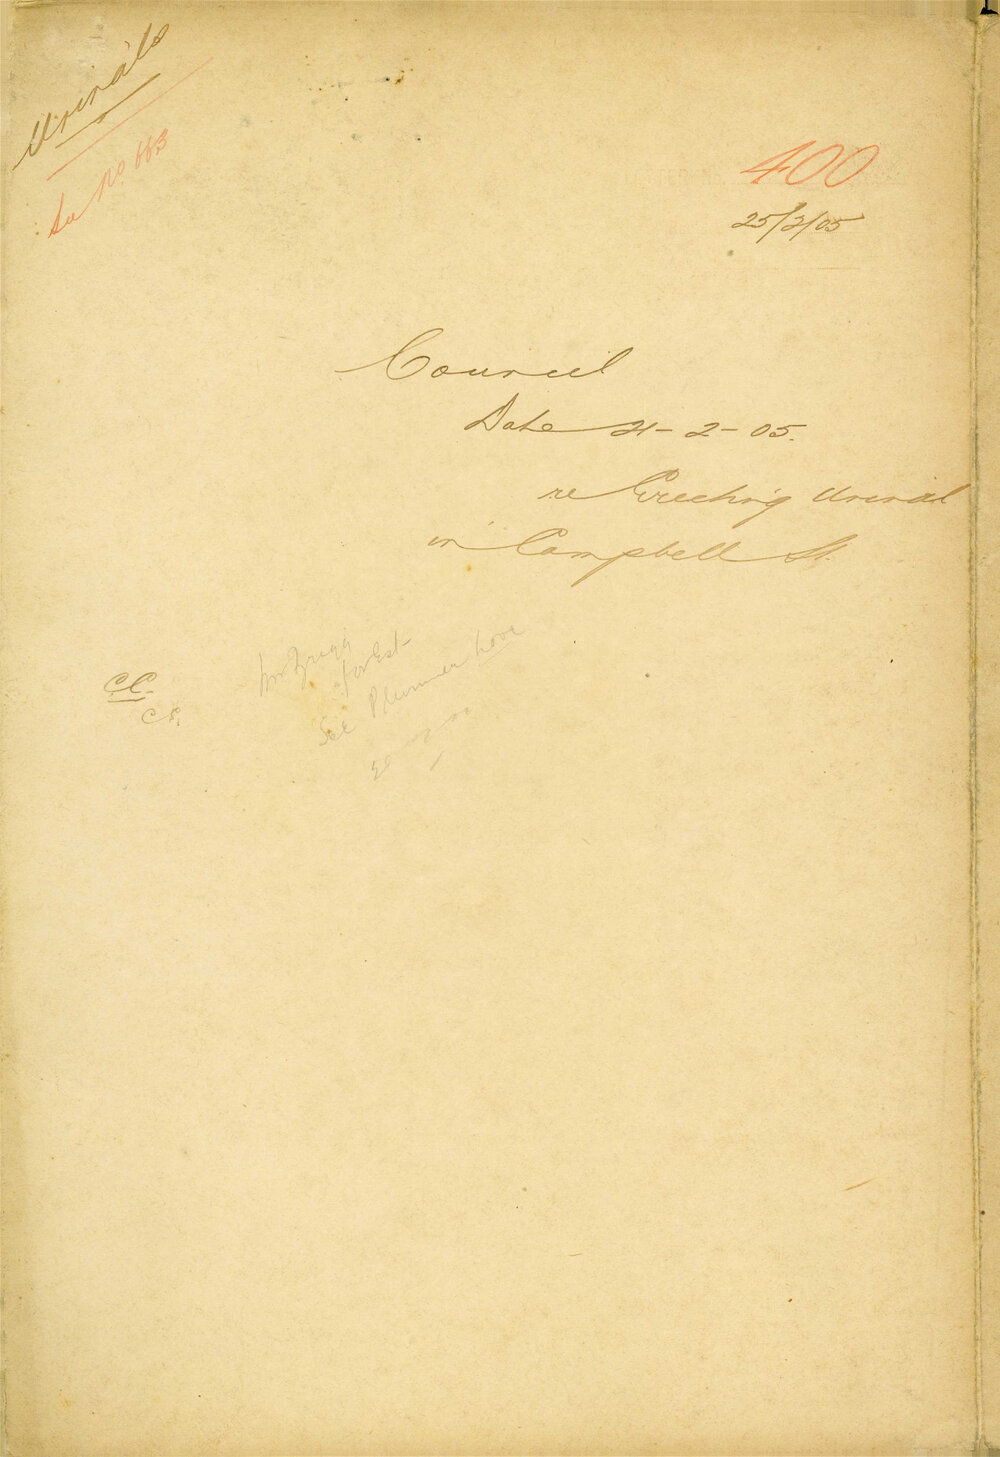 Urinals
See No. 663
400
25/2/05
Council
Date 21-2-05.
re Erecting Urinal
in Campbell St.
CC.
Mr Grigg
for Est-
See Plummer Love